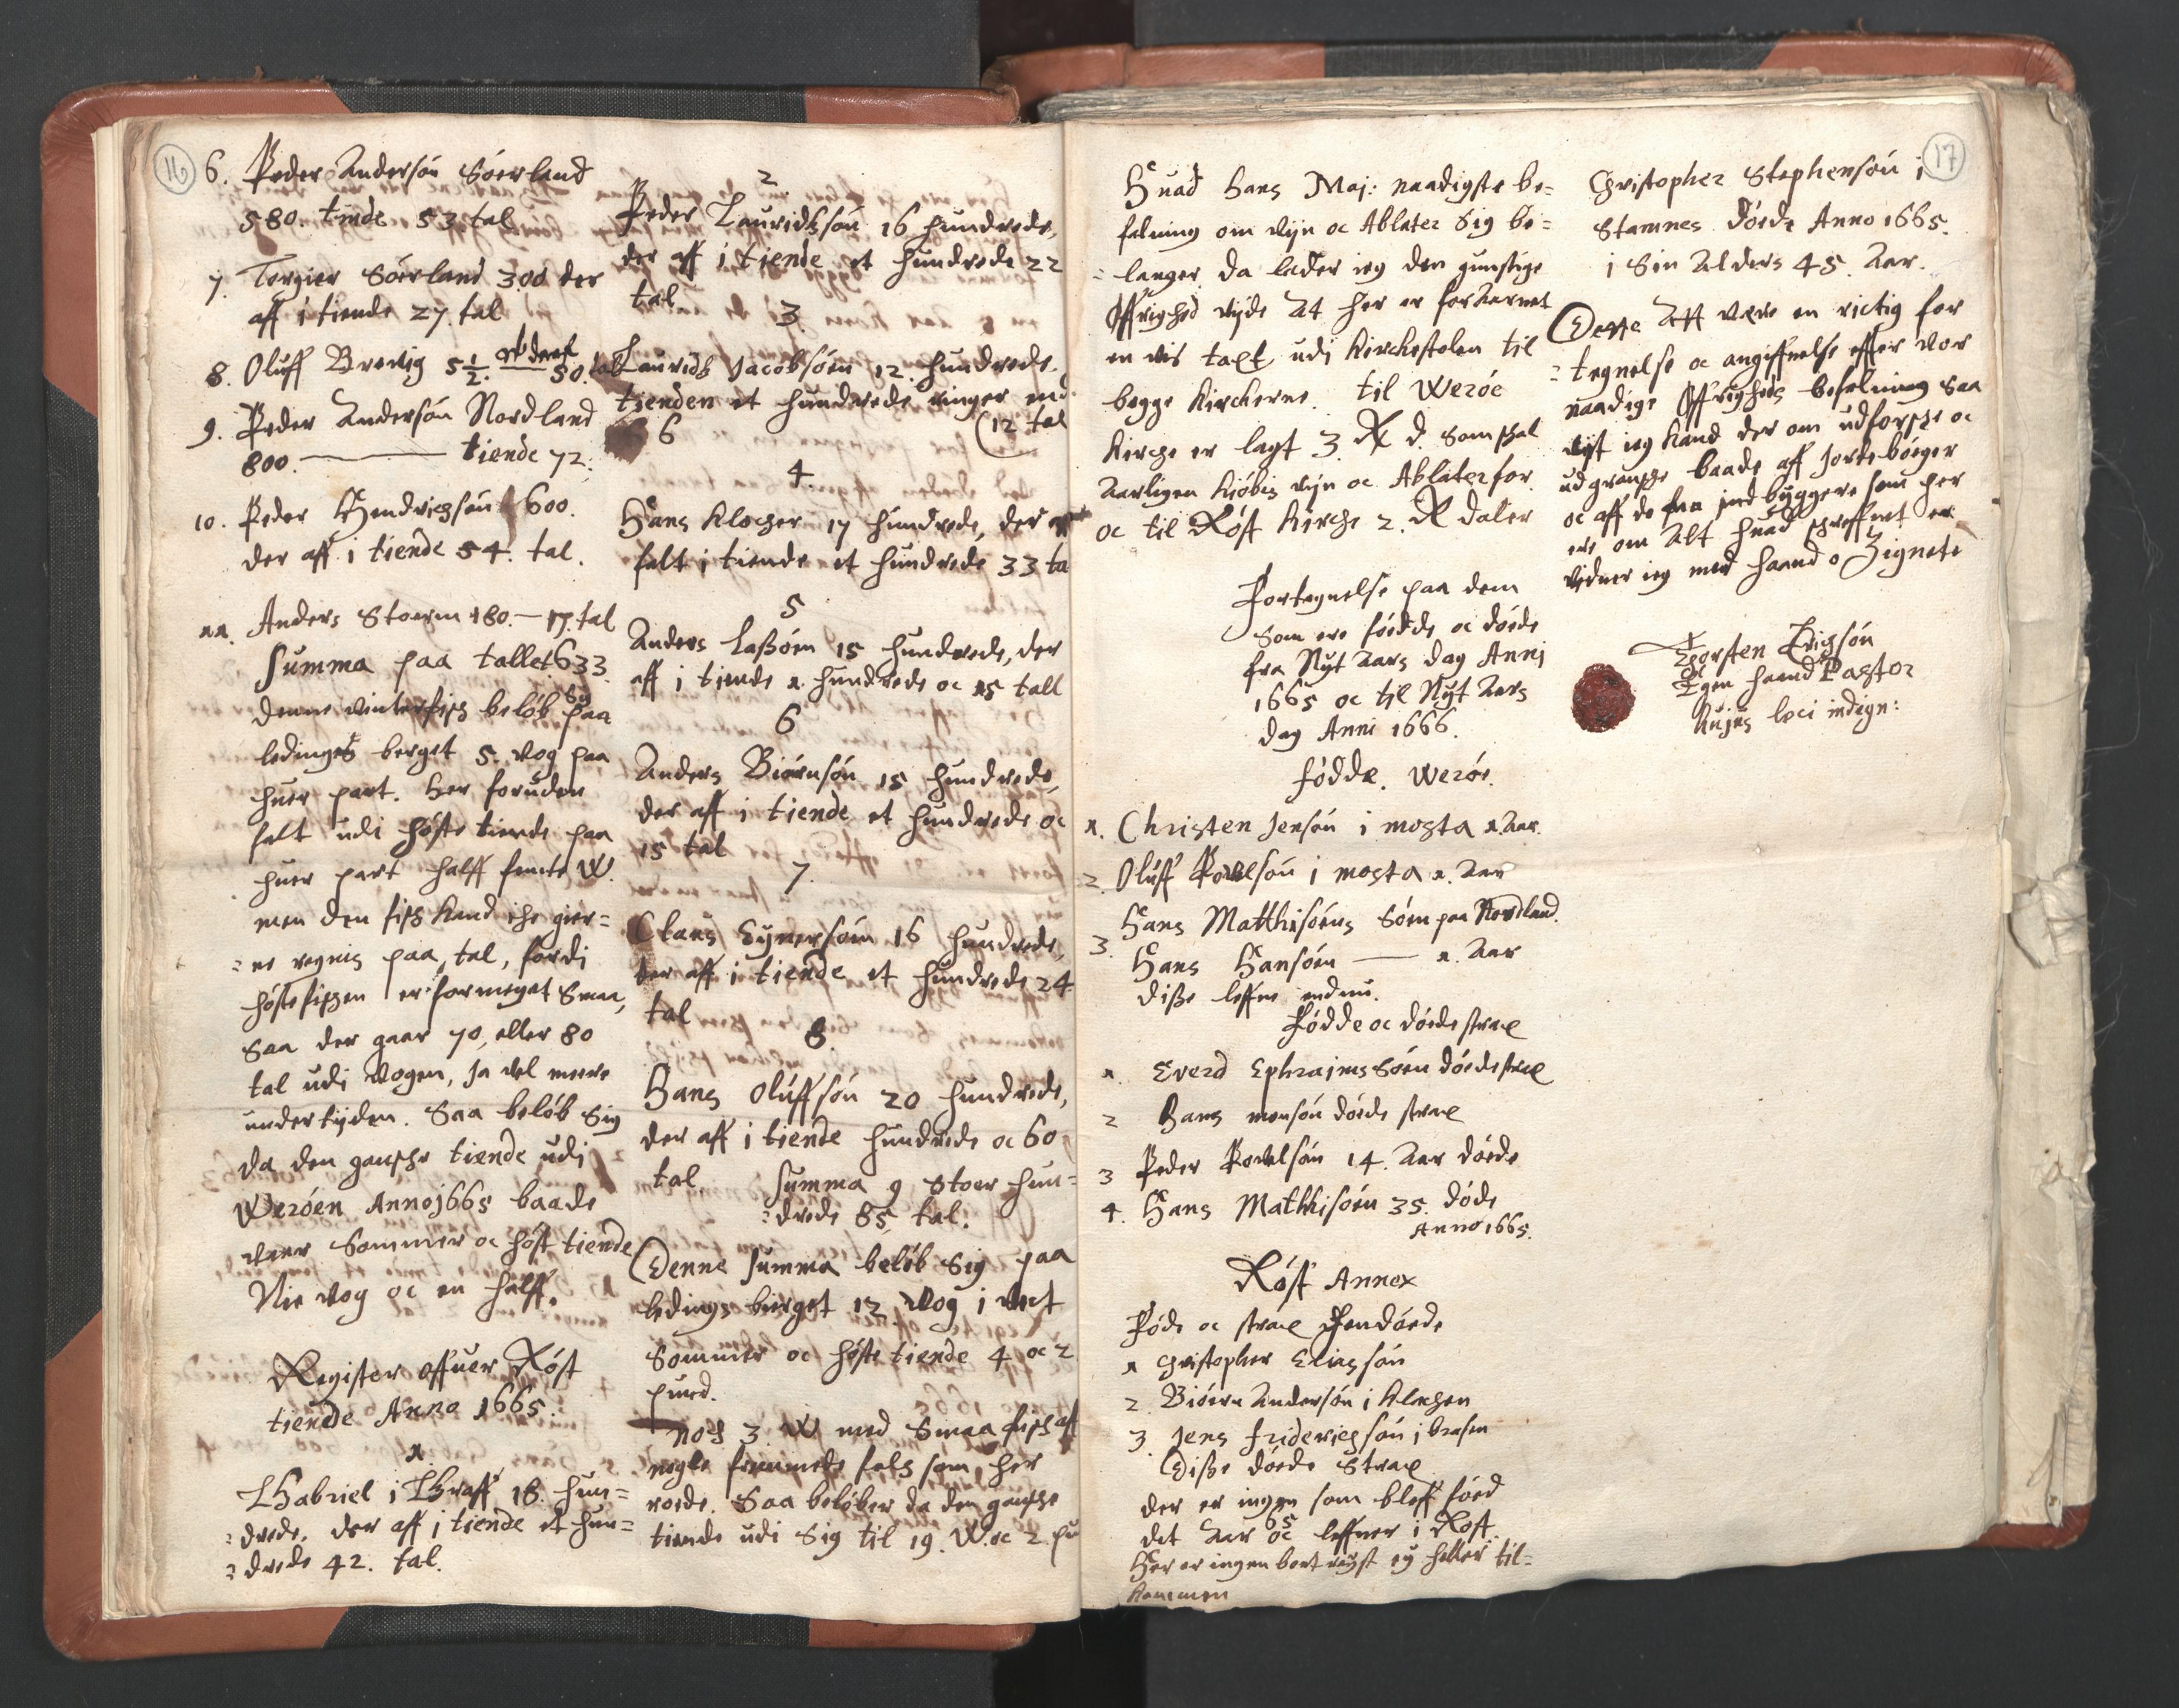 16
6. Peder Andersøn Sørland
580. tiende 53 tal
7. Torgier Sørland 300 der
aff i tiende 27 tal
8. Oluff Brevig 5½. der aff 50. tal
9. Peder Andersøn Nordland
800. — tiende 72.
10. Peder Hendrichsøn 600.
der aff i tiende 54. tal.
11. Anders Stoerm 180.— 17. tal
Summa paa tallet 633
Denne vinterfisch beløb sig paa
ledinges berget 5. vog paa
huer part. Her foruden
falt udi høste tiende paa
huer part halff femte W.
men den fisch kand iche gier=
=ne regnis paa tal, fordi
høstefischen er formeget smaa,
saa der gaar 70, eller 80
tal udi vogen, Ja vel meere
undertyden. Saa beløb sig
da den gansche tiende udi
Werøen Anno 1665 baade
vaar Sommer oc høst tiende
Nie vog oc en halff.
Register offuer Røst
tiende Anno 1665.
1.
Gabriel i 18. hun=
=drede. der aff i tiende et hun=
=drede 42. tal.
2
Peder Lauridssøn 16 hundrede,
der aff i tiende et hundrede 22
tal
3.
Laurids Jacobsøn 12. hundrede.
tienden et hundrede ringer end
6 (12 tal
4.
Hans Klocher 17 hundrede, der
falt i tiende et hundrede 33 ta
5
Anders Lassøn 15 hundrede, der
aff i tiende 1. hundrede oc 15 tall
6
Anders Biørnsøn 15 hundrede,
der aff i tiende et hundrede oc
15 tal
7.
Claus Eynersøn 16 hundrede,
der aff i tiende et hundrede 24
tal
8.
Hans Oluffsøn 20 hundrede,
der aff i tiende hundrede oc 60
tal. Summa 9 Stoer hun=
=drede 85 tal.
Denne Summa beløb sig paa
ledings berget 12 vog i
Sommer oc høste tiende 4 oc 2
pund.
noch 3 W med Smaa fisch aff
nogle fremmede folch som her
roede. Saa beløber da den gansche
tiende udi Sig til 19. W. oc 2 pu
17
Huad Hans Maj: naadigste be=
falning om vijn oc Ablater Sig be=
=langer da lader ieg den gunstige
Øffrighed vijde At her er for Aarnet
en vis taxt udi kirchestolen til
begge kircherne. til Werøe
Kirche er lagt 3. R d. som schal
Aarligen kiøbis vijn oc Ablater for
oc til Røst Kirche 2. R daler
Fortegnelse paa dem
Som ere fødde oc døede
fra Nyt Aars dag Anni
1665 oc til Nyt Aars
dag Anni 1666.
fødde. Werøe.
1. Christen Jensøn i mosta 1. Aar.
2. Oluff Povelsøn i mosta 1. Aar
3. Hans Matthisøns Søn paa Nordland.
Hans Hansøn — 1. Aar
disse leffue endnu.
Fødde oc døede strax
1. Everd Ephraims Søn døede strax
2 Hans monsøn døede strax
3 Peder Povelsøn 14. Aar døede
4. Hans Mathisøn 35. døde
Anno 1665.
Røst Annex
Føde oc strax hendøede
1 Christopher Eliassøn
2. Biørn Andersøn i Klachen
3. Jens Friderichsøn i
Disse døede Strax
der er ingen som bleff føed
det Aar 65 oc leffuer i Røst.
Her er ingen bort reyst ey heller til=
kommen
Christopher Stephensøn i
Stamnes døede Anno 1665.
i Sin Alders 45. Aar.
Dette Alt være en rictig for
=tegnelse oc angiffuelse effter vor
naadige Øffrigheds befalning saa
vijt ieg kand der om udforsche oc
udgransche baade aff Jordebøeger
oc aff de faa indbyggere som her
ere om Alt huad schreffuet er
vidner ieg med haand oc Zignete
Thorsten Erichsøn
Egen haand Pastor
hujus loci indign: